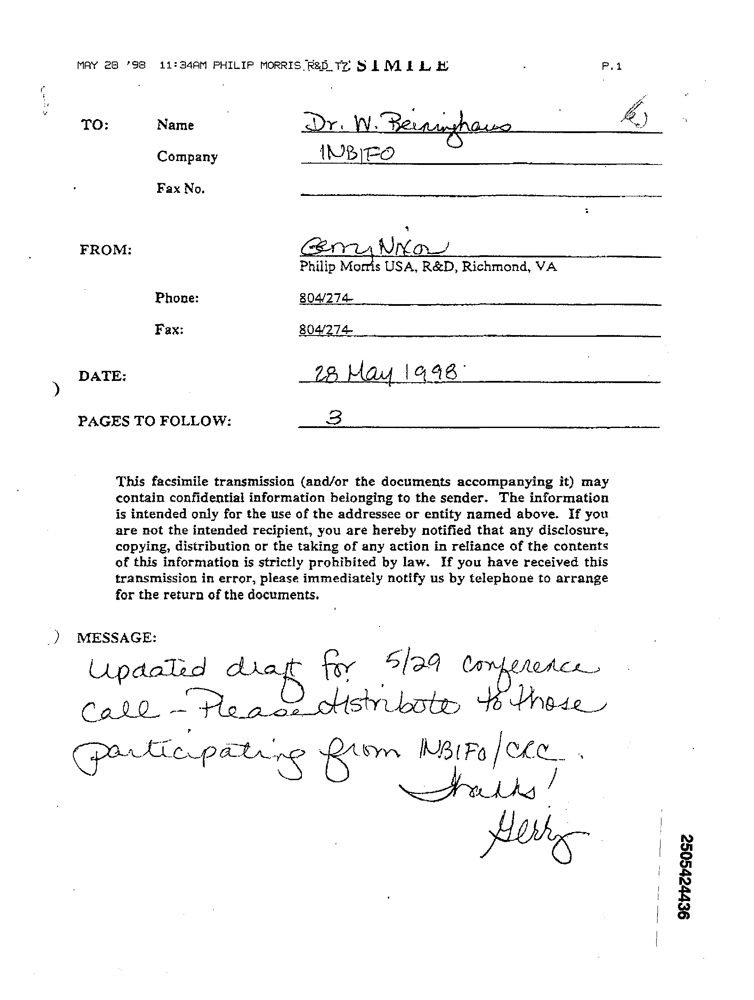 MAY 28 '98 11:34AM PHILIP MORRIS R&D TZ SIMILE P.1
TO: Name Dr. W. Reininghaus
Company INBIFO
Fax No.
FROM: Gerry Nixon
Philip Morris USA, R&D, Richmond, VA
Phone: 804/274-
Fax: 804/274-
DATE: 28 May 1998
PAGES TO FOLLOW: 3
This facsimile transmission (and/or the documents accompanying it) may
contain confidential information belonging to the sender. The information
is intended only for the use of the addressee or entity named above. If you
are not the intended recipient, you are hereby notified that any disclosure,
copying, distribution or the taking of any action in reliance of the contents
of this information is strictly prohibited by law. If you have received this
transmission in error, please immediately notify us by telephone to arrange
for the return of the documents.
MESSAGE:
Updated draft for 5/29 conference
Call - Please distribute to those
participating from INBIFO/CRC.
Thanks!
Gerry
2505424436